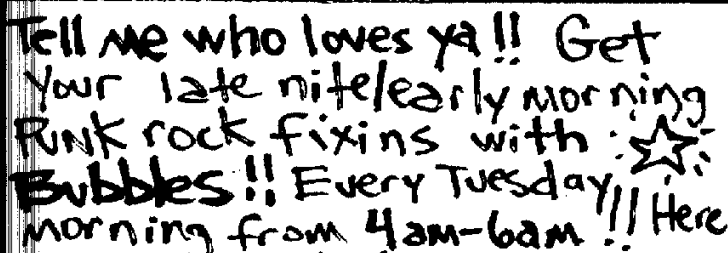 Tell me who loves ya!! Get
your late nite/early morning
Punk rock fixins with
Bubbles!! Every Tuesday
morning from 4am-6am!! Here